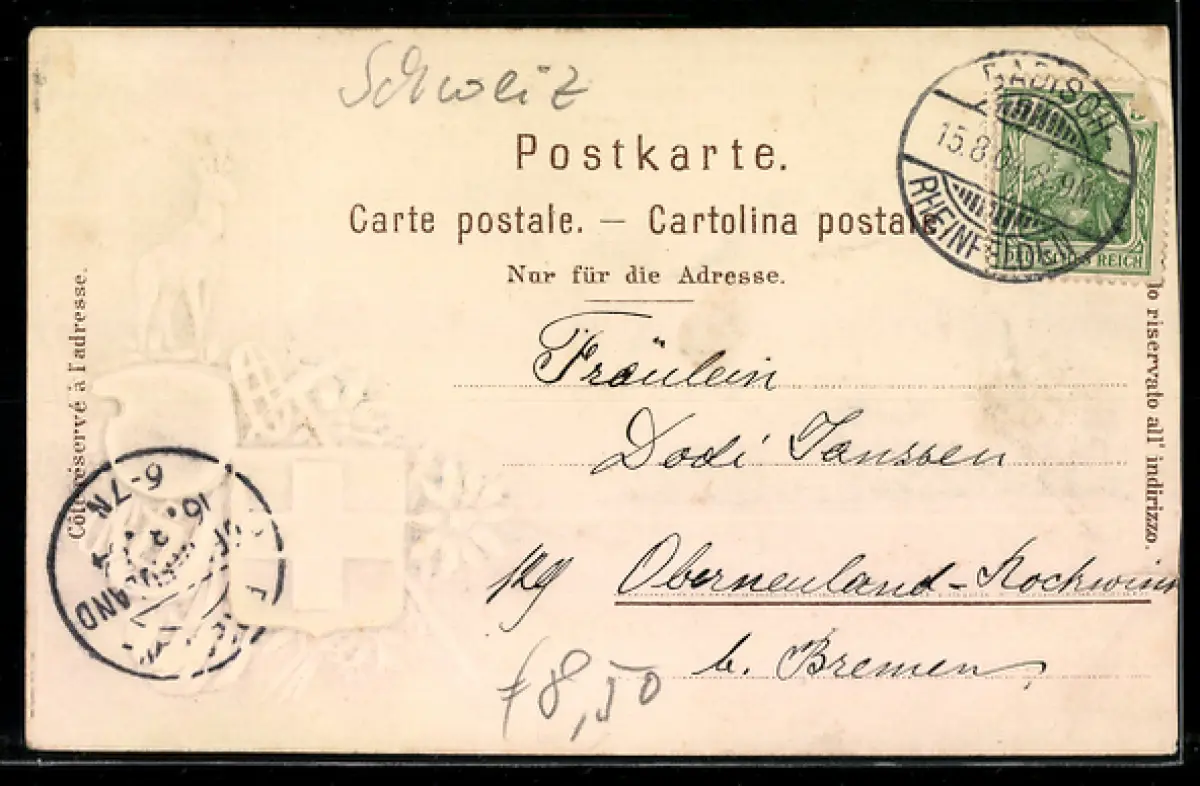 Schweiz
Postkarte.
Carte postale. — Cartolina postale
Nur für die Adresse.
Côté réservé à l'adresse.
lo riservato all' indirizzo.
BADISCH-
15.8.0 8-9N
RHEINFELDEN
5
DEUTSCHES REICH
Fräulein
Dodi Janssen
Oberneuland-Rockwink
b. Bremen
6-7N
16.
LAND
f 8,50